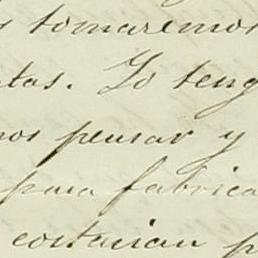 s tomaremos
tas. Yo teng
nos pensar y
para fabrica
costarian p